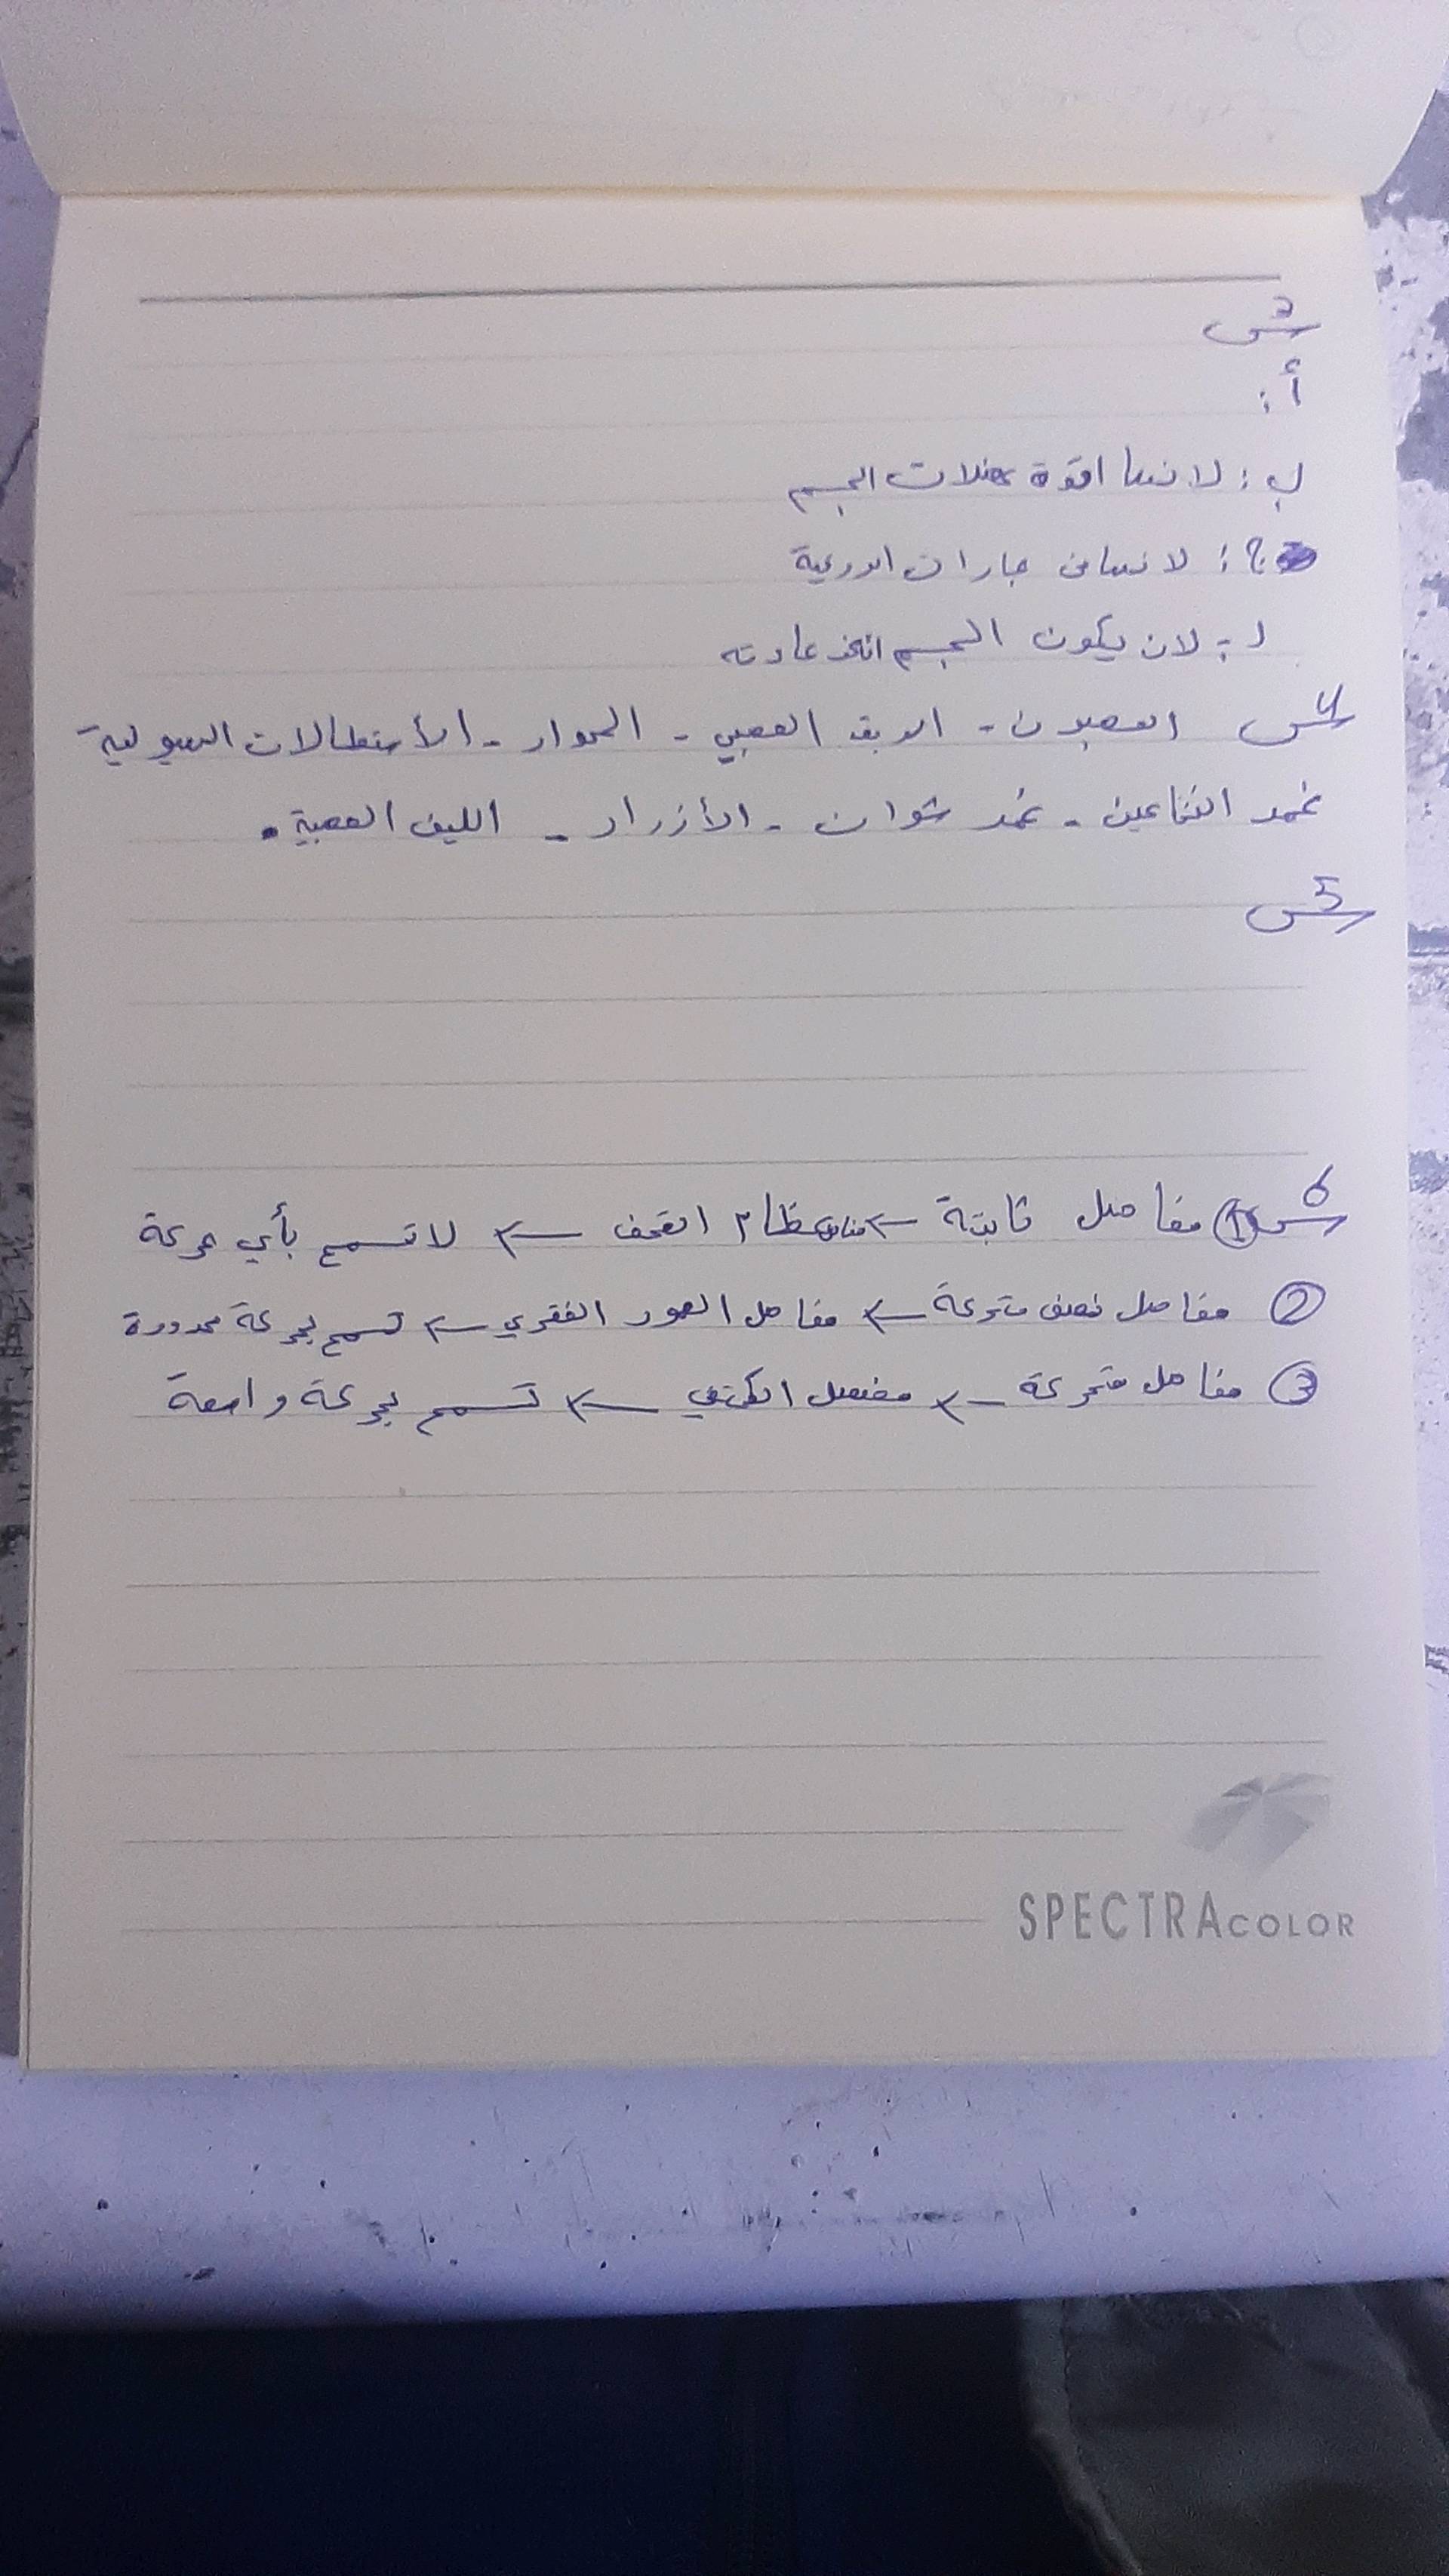 س3
أ:
ب: لانها اقوة عضلات الجسم
ج: لانها من جارات الدرعية
د: لان يكون الجسم اتخذ عادته
س4 العصبون - الدبق العصبي - المحوار - الأستطالات الهيولية
غمد النخاعين - غمد شوان - الأزرار - الليف العصبية.
س5
س6 ① مفاصل ثابتة ← عظام القحف ← لا تسمح بأي حركة
② مفاصل نصف متحركة ← مفاصل العمود الفقري ← تسمح بحركة محدودة
③ مفاصل متحركة ← مفصل الكتفي ← تسمح بحركة واسعة
SPECTRACOLOR